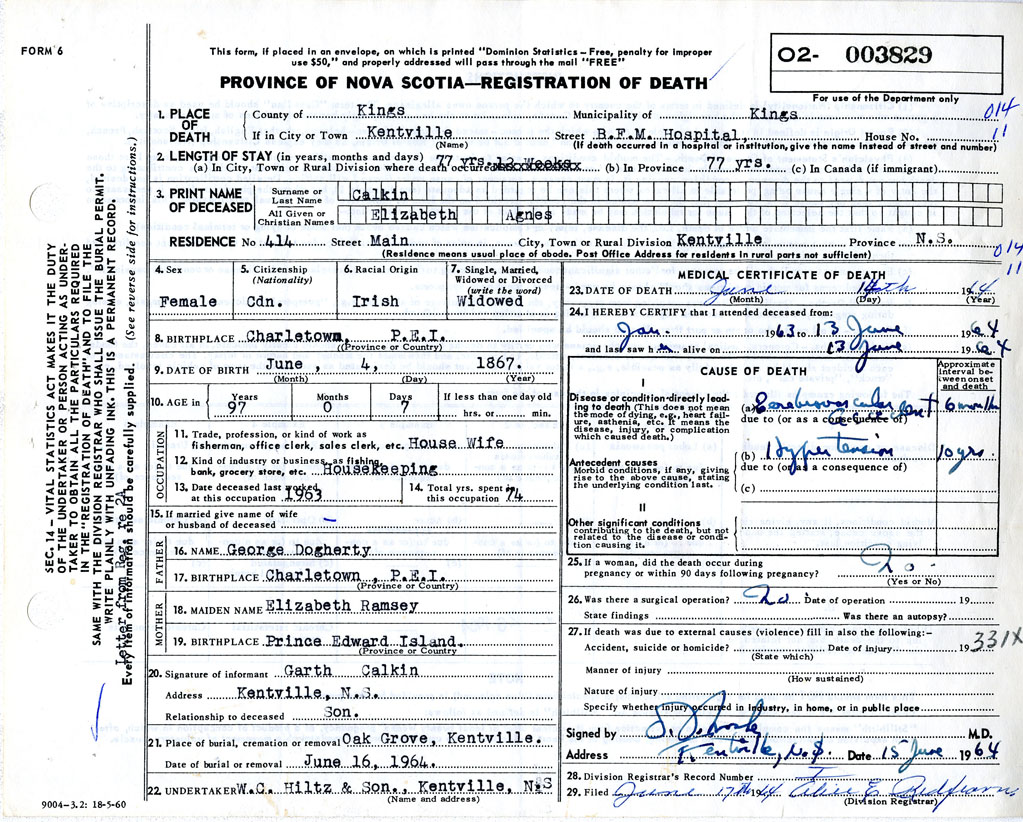 FORM 6
This form, if placed in an envelope, on which is printed "Dominion Statistics – Free, penalty for improper
use $50," and properly addressed will pass through the mail "FREE"
PROVINCE OF NOVA SCOTIA—REGISTRATION OF DEATH
O2- 003829
For use of the Department only
1. PLACE OF DEATH
County of Kings Municipality of Kings 014
If in City or Town Kentville Street B.F.M. Hospital, House No. 11
(Name) (If death occurred in a hospital or institution, give the name instead of street and number)
2. LENGTH OF STAY (in years, months and days) 77 yrs. 12 Weeks
(a) In City, Town or Rural Division where death occurred xxxxxxxxxx (b) In Province 77 yrs. (c) In Canada (if immigrant)
3. PRINT NAME OF DECEASED
Surname or Last Name Calkin
All Given or Christian Names Elizabeth Agnes
RESIDENCE No. 414 Street Main City, Town or Rural Division Kentville Province N.S. 014
(Residence means usual place of abode. Post Office Address for residents in rural parts not sufficient) 11
4. Sex
Female
5. Citizenship
(Nationality)
Cdn.
6. Racial Origin
Irish
7. Single, Married,
Widowed or Divorced
(write the word)
Widowed
8. BIRTHPLACE Charletown, P.E.I.
(Province or Country)
9. DATE OF BIRTH June, 4, 1867.
(Month) (Day) (Year)
10. AGE in Years 97 Months 0 Days 7 If less than one day old
hrs. or min.
OCCUPATION
11. Trade, profession, or kind of work as
fisherman, office clerk, sales clerk, etc. House Wife
12. Kind of industry or business, as fishing,
bank, grocery store, etc. Housekeeping
13. Date deceased last worked
at this occupation 1963
14. Total yrs. spent in
this occupation 74
15. If married give name of wife
or husband of deceased –
FATHER
16. NAME George Dogherty
17. BIRTHPLACE Charletown, P.E.I.
(Province or Country)
MOTHER
18. MAIDEN NAME Elizabeth Ramsey
19. BIRTHPLACE Prince Edward Island.
(Province or Country
20. Signature of informant Garth Calkin
Address Kentville, N.S.
Relationship to deceased Son.
21. Place of burial, cremation or removal Oak Grove, Kentville.
Date of burial or removal June 16, 1964.
22. UNDERTAKER W.C. Hiltz & Son., Kentville, N.S
(Name and address)
MEDICAL CERTIFICATE OF DEATH
23. DATE OF DEATH June 14th 1964
(Month) (Day) (Year)
24. I HEREBY CERTIFY that I attended deceased from:
Jan. 1963 to 13 June 1964
and last saw her alive on 13 June 1964
CAUSE OF DEATH
Approximate
interval be-
tween onset
and death
I
Disease or condition directly lead-
ing to death (This does not mean
the mode of dying, e.g., heart fail-
ure, asthenia, etc. It means the
disease, injury, or complication
which caused death.)
(a) Cerebrovascular accident 6 months
due to (or as a consequence of)
Antecedent causes
Morbid conditions, if any, giving
rise to the above cause, stating
the underlying condition last.
(b) Hypertension 10 yrs.
due to (or as a consequence of)
(c)
II
Other significant conditions
contributing to the death, but not
related to the disease or condi-
tion causing it.
25. If a woman, did the death occur during
pregnancy or within 90 days following pregnancy? No
(Yes or No)
26. Was there a surgical operation? No. Date of operation 19
State findings Was there an autopsy?
27. If death was due to external causes (violence) fill in also the following:–
Accident, suicide or homicide? Date of injury 19 331X
(State which)
Manner of injury
(How sustained)
Nature of injury
Specify whether injury occurred in industry, in home, or in public place
Signed by M.D.
Address Kentville, N.S. Date 15 June 1964
28. Division Registrar's Record Number
29. Filed June 17th 1964 Alice E. Redfearn
(Division Registrar)
SEC. 14 — VITAL STATISTICS ACT MAKES IT THE DUTY
OF THE UNDERTAKER OR PERSON ACTING AS UNDER-
TAKER TO OBTAIN ALL THE PARTICULARS REQUIRED
IN THE "REGISTRATION OF DEATH" AND TO FILE THE
SAME WITH THE DIVISION REGISTRAR WHO SHALL ISSUE THE BURIAL PERMIT.
WRITE PLAINLY WITH UNFADING INK. THIS IS A PERMANENT RECORD.
Letter from Reg. re 2A
Every item of information should be carefully supplied. (See reverse side for instructions.)
9004-3.2: 18-5-60